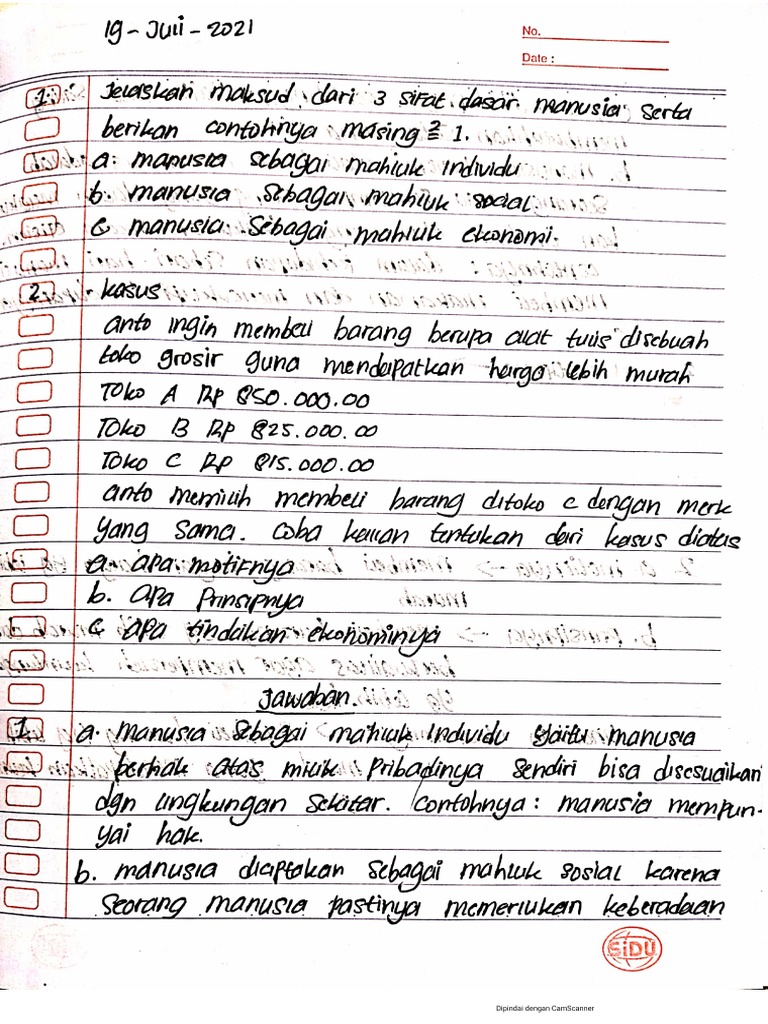 19 - Juli - 2021
No.
Date :
1. Jelaskan maksud dari 3 sifat dasar manusia serta
berikan contohnya masing 2 1.
a. manusia sebagai mahluk Individu
b. manusia sebagai mahluk social
c manusia sebagai mahluk ekonomi.
2. kasus
anto ingin membeli barang berupa alat tulis disebuah
toko grosir guna mendapatkan harga lebih murah
Toko A Rp 850.000.00
Toko B Rp 825.000.00
Toko C Rp 815.000.00
anto memilih membeli barang ditoko c dengan merk
yang sama. Coba kalian tentukan dari kasus diatas
a. apa motifnya
b. apa Prinsipnya
c apa tindakan ekonominya
Jawaban.
1 a. manusia sebagai mahluk Individu yaitu manusia
berhak atas milik Pribadinya sendiri bisa disesuaikan
dgn lingkungan sekitar. Contohnya : manusia mempun-
yai hak.
b. manusia diciptakan sebagai mahluk sosial karena
seorang manusia pastinya memerlukan keberadaan
SiDU
Dipindai dengan CamScanner